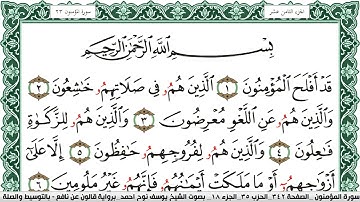 الجزء الثامن عشر
سورة المؤمنون ٢٣
بِسْمِ اللَّهِ الرَّحْمَٰنِ الرَّحِيمِ
قَدْ أَفْلَحَ الْمُؤْمِنُونَ ١ الَّذِينَ هُمُۥ فِي صَلَاتِهِمُۥ خَٰشِعُونَ ٢
وَالَّذِينَ هُمُۥ عَنِ اللَّغْوِ مُعْرِضُونَ ٣ وَالَّذِينَ هُمُۥ لِلزَّكَوٰةِ
فَٰعِلُونَ ٤ وَالَّذِينَ هُمُۥ لِفُرُوجِهِمُۥ حَٰفِظُونَ ٥ إِلَّا عَلَىٰ
أَزْوَٰجِهِمُۥ أَوْ مَا مَلَكَتْ أَيْمَٰنُهُمُۥ فَإِنَّهُمُۥ غَيْرُ مَلُومِينَ ٦
سورة المؤمنون الصفحة ٣٤٢ الحزب ٣٥ الجزء ١٨ بصوت الشيخ يوسف نوح احمد برواية قالون عن نافع - بالتوسيط والصلة